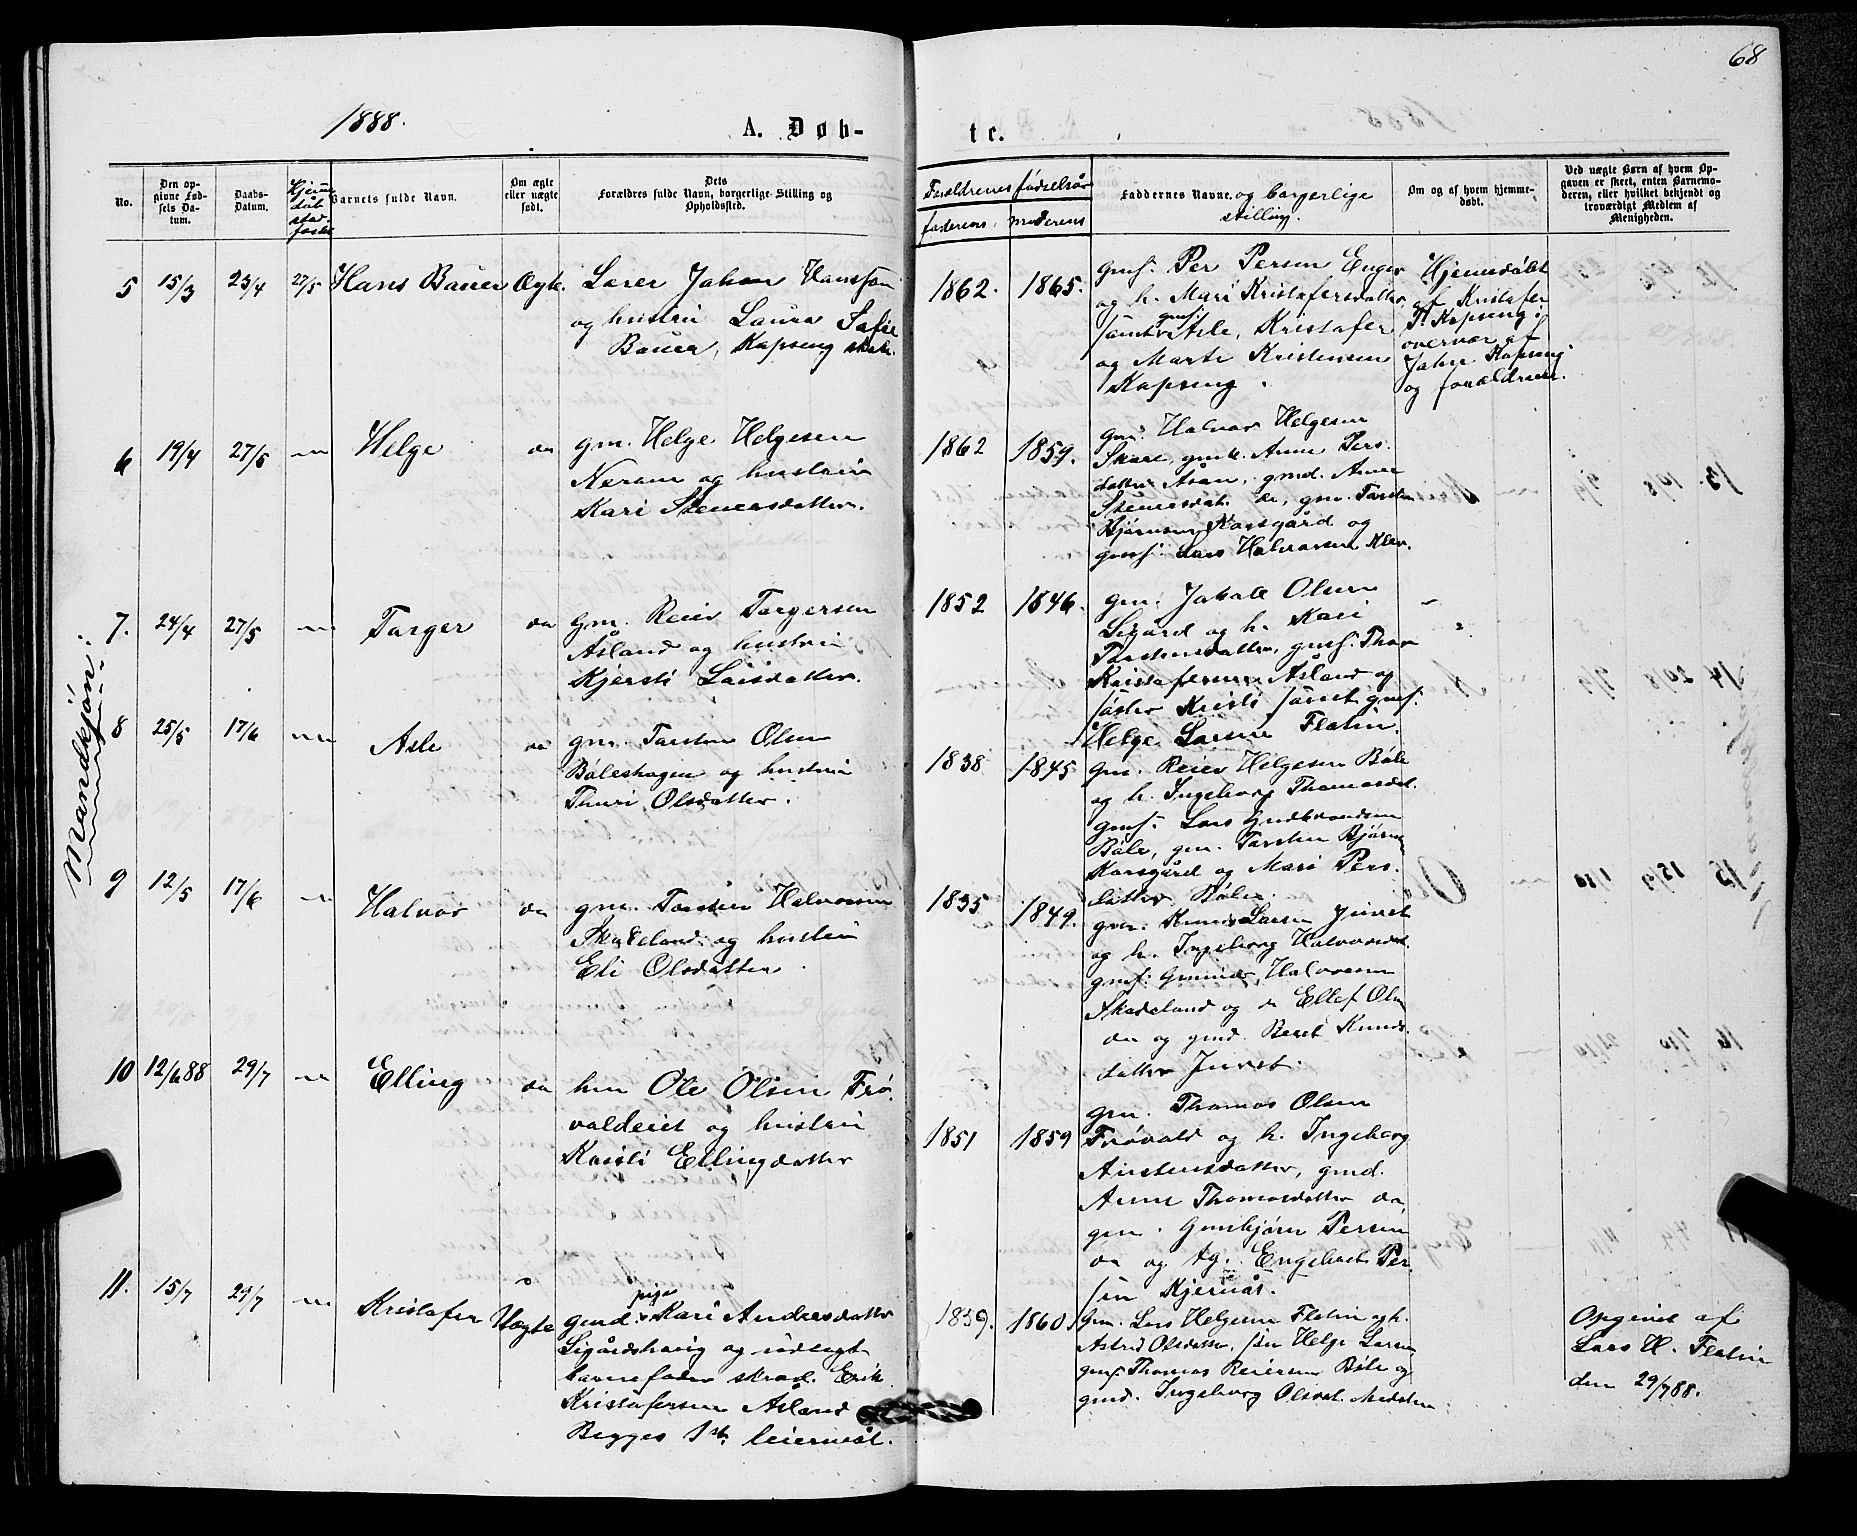 68
1888.
A. Døb-
te.
No.
Den op-
givne Fød-
sels Da-
tum.
Daabs-
Datum.
Hjemme
døb
stad-
fæstet
Barnets fulde Navn.
Om ægte
eller uægte
født.
Dets
Forældres fulde Navn, borgerlige Stilling og
Opholdssted.
Forældrenes fødselsår
faderens. moderens
Faddernes Navne og borgerlige
stilling.
Om og af hvem hjemme-
døbt.
Ved uægte Børn af hvem Op-
gaven er skeet, enten Barnemo-
deren, eller hvilket bekjendt og
troværdigt Medlem af
Menigheden.
Mandkjøn:
5 15/3 23/4 27/5 Hans Bauer Ægte.
Lærer Johan Hansen
og hustru Laura Sofie
Bauer, Kapseng
1862. 1865.
gmf. Per Persen Enger
og h. Mari Kristofersdatter,
samt gmf. Asle, Kristofer
og Marte Kristensen
Kapseng.
Hjemmedøbt
af Kristofer
T. Kapseng i
overvær af
Jahn Kapseng
og forældrene.
6 19/4 27/5 Helge do
gm. Helge Helgesen
Noran og hustru
Kari Steneresdatter.
1862 1859.
gm. Halvor Helgesen
Skare, gmk. Anne Pers-
datter Åsan, gmd. Anne
Steneresdat. do, gm. Torsten
Bjørnsen Korsgård og
gmf. Lars Halvorsen Klev.
7. 24/4 27/5 Torger do
gm. Reier Torgersen
Åsland og hustru
Kjersti Larsdatter.
1852 1846.
gm. Jakob Olsen
Sigård og h. Kari
Torstensdatter, gmf. Thor
Kristofersen Åsland og
søster Kristi samt gmf.
Helge Larsen Flatin.
8 25/5 17/6 Asle do
gm. Torsten Olsen
Bøleshagen og hustru
Thuri Olsdatter.
1838 1845
gm. Reier Helgesen Bøle
og h. Ingeborg Thomasdat.
gmf. Lars Gudbrandsen
Bøle, gm. Torsten Bjørns.
Korsgård og Mari Pers-
datter Bølin.
9 12/5 17/6 Halvor do
gm. Torsten Halvorsen
Skadeland og hustru
Eli Olsdatter.
1835 1849.
gm. Knud Larsen Juvet
og h. Ingeborg Halvorsdat.
gmf. Gunnar Halvorsen
Skadeland og do Ellef Olsen
do og gmd. Beret Knuds-
datter Juvet.
10 12/6 88 29/7 Elling do
hm Ole Olsen Frø-
valdeiet og hustru
Kristi Ellingdatter
1851 1859
gm. Thomas Olsen
Frøvald og h. Ingeborg
Austensdatter, gmd.
Anne Thomasdatter do,
gm. Gunbjørn Persen
do og tg. Engebret Per-
sen Kjernås.
11. 15/7 29/7 Kristofer Uægte
gmd. pige Kari Andresdatter
Sigårdshaug og udlagt
barnefader skrad. Erik
Kristofersen Åsland
Begges 1ste leiermål.
1839. 1860.
Gm. Lars Helgesen Flatin og h.
Astrid Olsdatter, søn Helge Larsen
gmf. Thomas Reiersen Bøle og
gmd. Ingeborg Olsdat. Medalen.
Opgivet af
Lars H. Flatin
den 29/7 88.